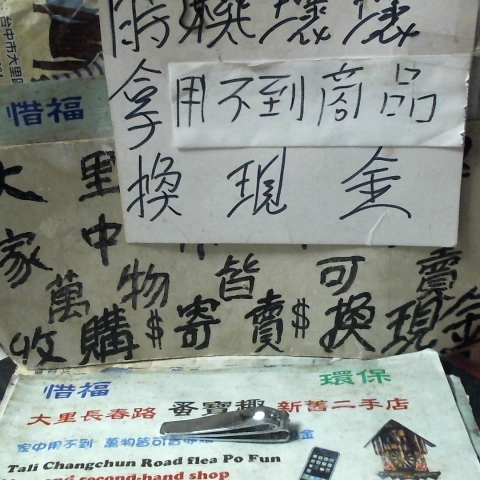 台中市大里
時機壞壞
惜福
拿用不到商品
換現金
大里
家中
萬物皆可賣
收購$寄賣$換現金
惜福 環保
大里長春路 蚤寶趣 新舊二手店
家中用不到 萬物皆可 金
Tali Changchun Road flea Po Fun
second-hand shop